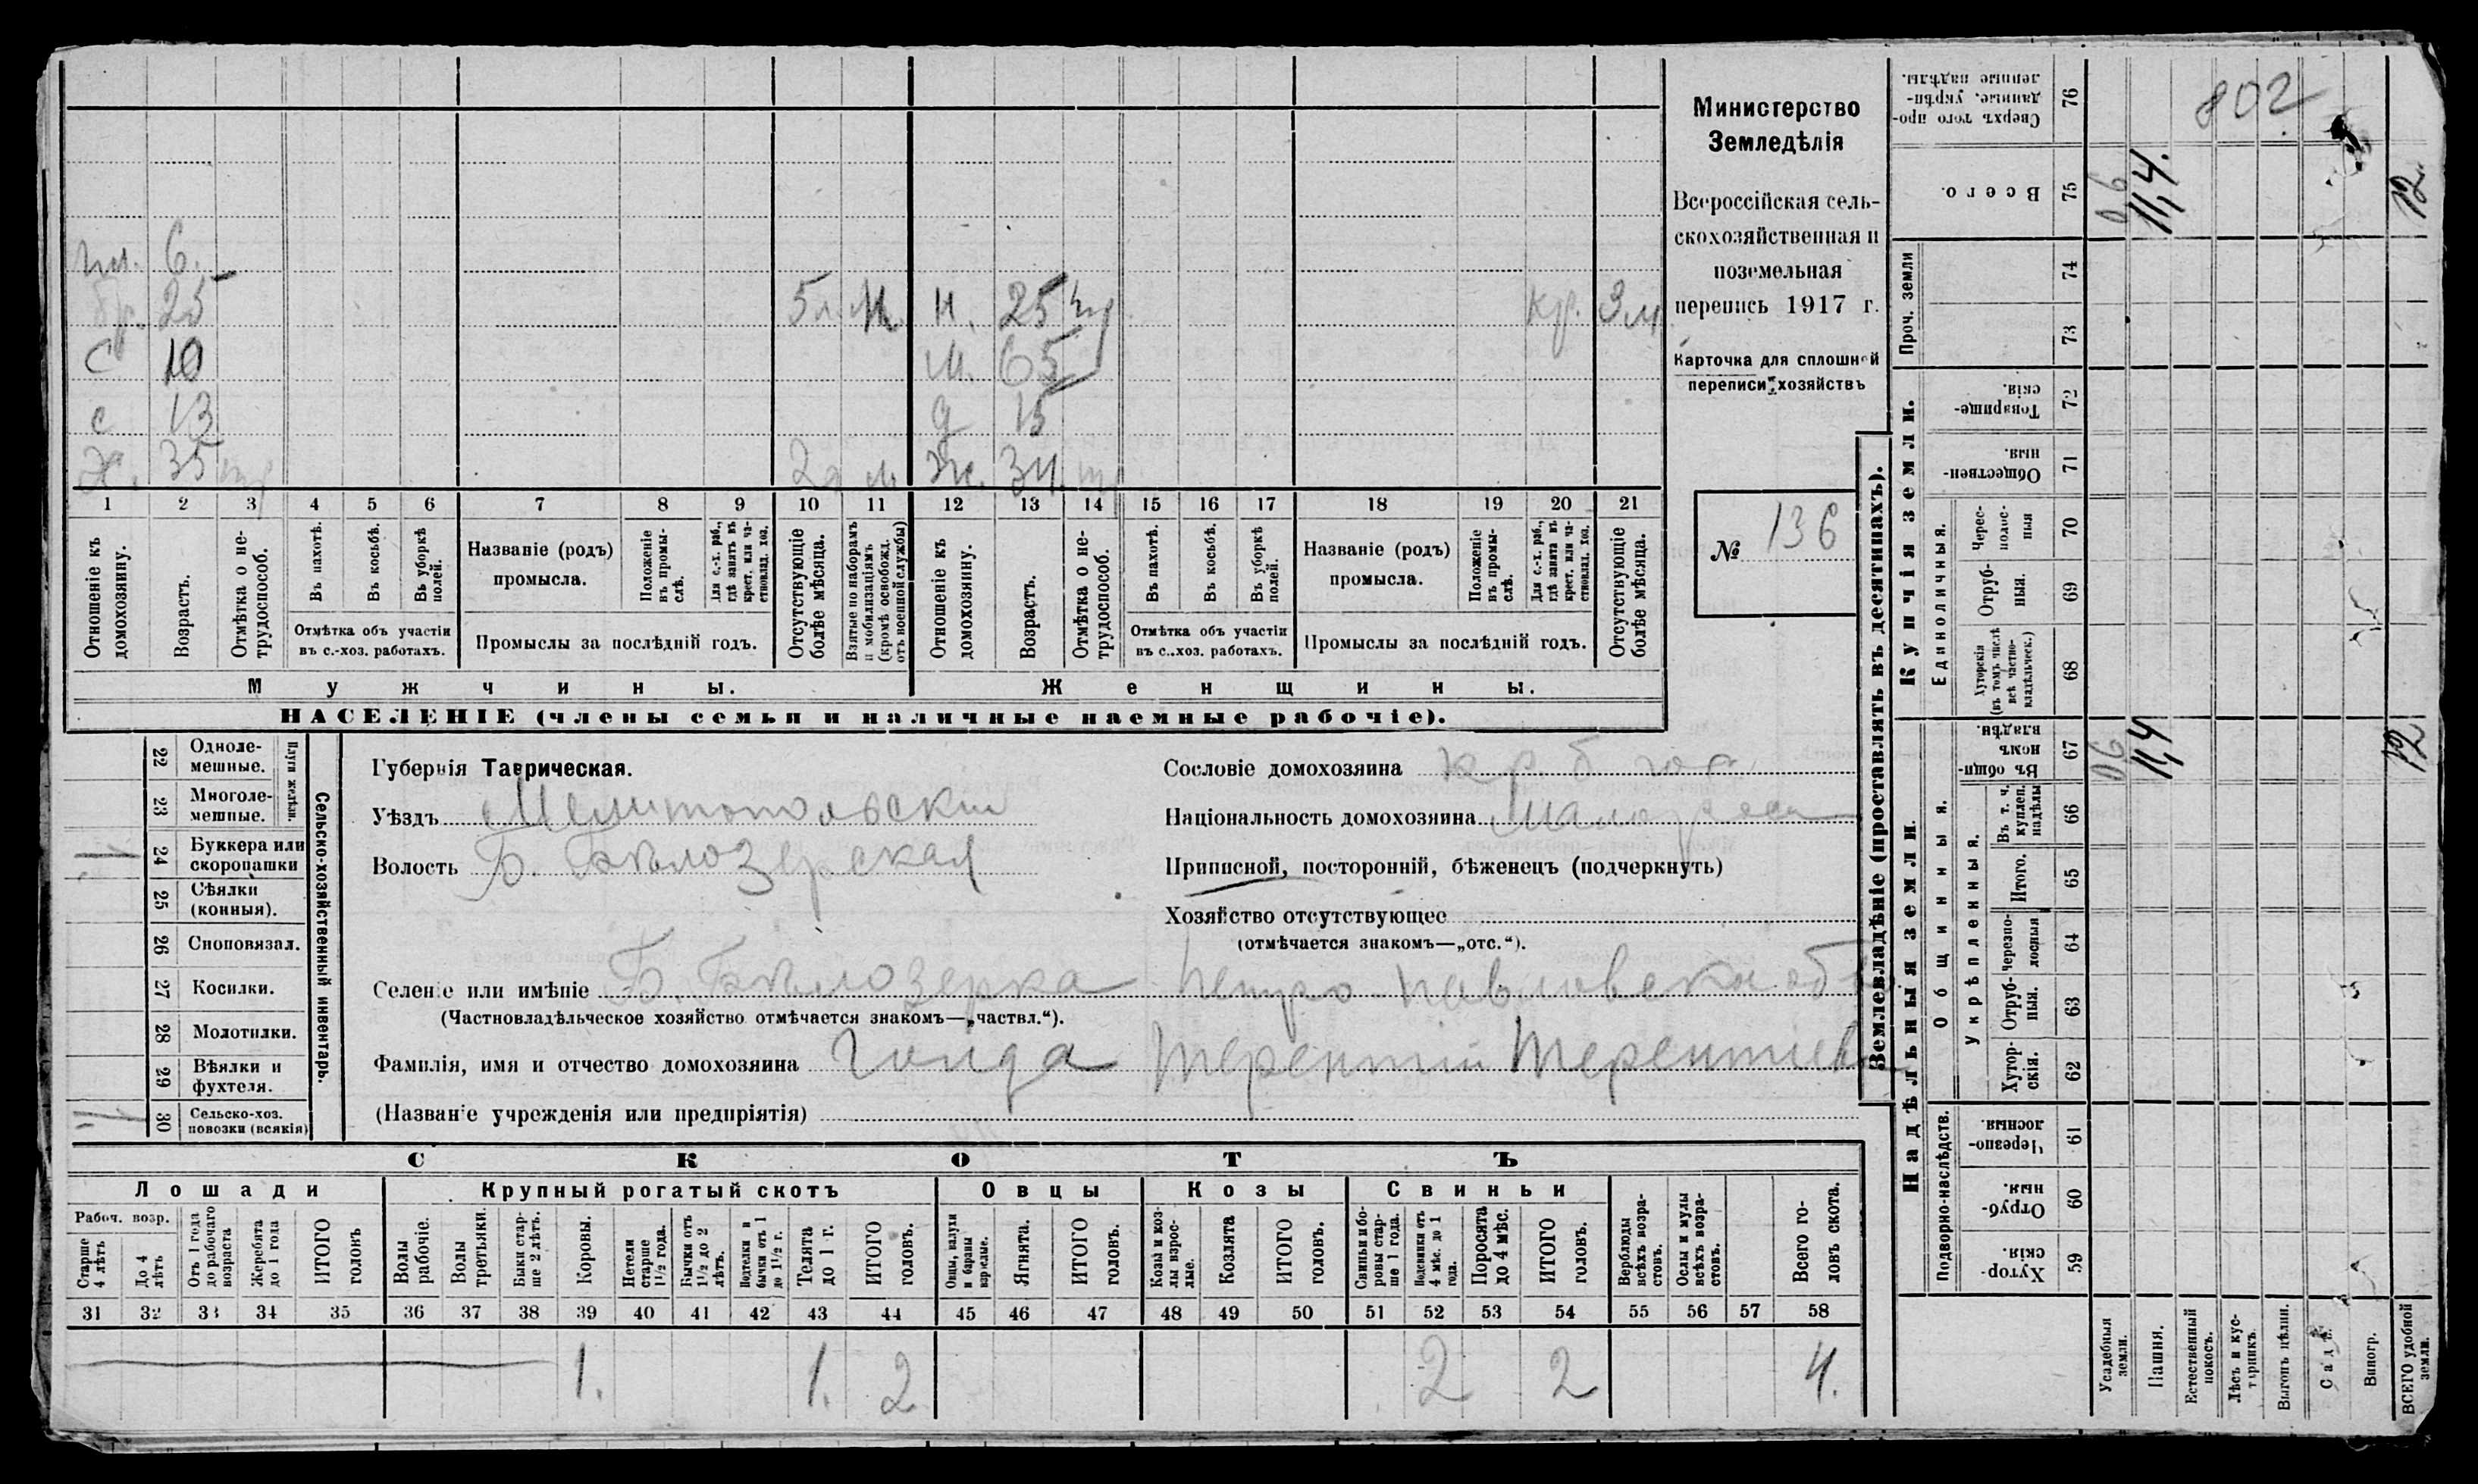 пл. 6.
бр. 25 5 л. м. н. 25 кр. 3 м.
с 10 м. 65
с 13 д 15
х. 35 2 м. ж. 34
1 2 3 4 5 6 7 8 9 10 11 12 13 14 15 16 17 18 19 20 21
Отношеніе къ домохозяину.
Возрастъ.
Отмѣтка о не-трудоспособ.
Въ пахотѣ.
Въ косьбѣ.
Въ уборкѣ полей.
Отмѣтка объ участіи въ с.-хоз. работахъ.
Названіе (родъ) промысла.
Положеніе въ промы-слѣ.
Для с.-х. раб., гдѣ занятъ въ крест. или ча-стновлад. хоз.
Промыслы за послѣдній годъ.
Отсутствующіе болѣе мѣсяца.
Взятые по наборамъ и мобилизаціямъ (кромѣ освобожд. отъ военной службы)
Отношеніе къ домохозяину.
Возрастъ.
Отмѣтка о не-трудоспособ.
Въ пахотѣ.
Въ косьбѣ.
Въ уборкѣ полей.
Отмѣтка объ участіи въ с.-хоз. работахъ.
Названіе (родъ) промысла.
Положеніе въ промы-слѣ.
Для с.-х. раб., гдѣ занята въ крест. или ча-стновлад. хоз.
Промыслы за послѣдній годъ.
Отсутствующіе болѣе мѣсяца.
Мужчины. Женщины.
НАСЕЛЕНІЕ (члены семьи и наличные наемные рабочіе).
Министерство
Земледѣлія
Всероссійская сель-
скохозяйственная и
поземельная
перепись 1917 г.
Карточка для сплошной
переписи хозяйствъ
№ 136
22 Одноле-мешные.
23 Многоле-мешные.
Плуги желѣзн.
24 Буккера или скоропашки
25 Сѣялки (конныя).
26 Сноповязал.
27 Косилки.
28 Молотилки.
29 Вѣялки и фухтеля.
30 Сельско-хоз. повозки (всякія)
Сельско-хозяйственный инвентарь.
Губернія Таврическая.
Уѣздъ Мелитопольскій
Волость Б. Бѣлозерская
Сословіе домохозяина кр. б. гос.
Національность домохозяина Малоросс
Приписной, посторонній, бѣженецъ (подчеркнуть)
Хозяйство отсутствующее
(отмѣчается знакомъ—„отс.“).
Селеніе или имѣніе Б. Бѣлозерка Петро-Павловска об
(Частновладѣльческое хозяйство отмѣчается знакомъ—„частвл.“).
Фамилія, имя и отчество домохозяина Гонда Терентій Терентіев
(Названіе учрежденія или предпріятія)
СКОТЪ
Лошади Крупный рогатый скотъ Овцы Козы Свиньи
Рабоч. возр.
Старше 4 лѣтъ
До 4 лѣтъ
Отъ 1 года до рабочаго возраста
Жеребята до 1 года
ИТОГО головъ
Волы рабочіе.
Волы третьяки.
Быки стар-ше 2 лѣтъ.
Коровы.
Нетели старше 1½ года.
Бычки отъ 1½ до 2 лѣтъ.
Подтелки и бычки отъ 1 до 1½ г.
Телята до 1 г.
ИТОГО головъ.
Овцы, валухи и бараны взрослые.
Ягнята.
ИТОГО головъ.
Козы и коз-лы взрос-лые.
Козлята
ИТОГО головъ.
Свиньи и бо-ровы стар-ше 1 года.
Подсвинки отъ 4 мѣс. до 1 года.
Поросята до 4 мѣс.
ИТОГО головъ.
Верблюды всѣхъ возра-стовъ.
Ослы и мулы всѣхъ возра-стовъ.
Всего го-ловъ скота.
31 32 33 34 35 36 37 38 39 40 41 42 43 44 45 46 47 48 49 50 51 52 53 54 55 56 57 58
1. 1. 2 2 2 4.
Землевладѣніе (проставлять въ десятинахъ).
Надѣльныя земли.
Купчія земли.
Проч. земли
Подворно-наслѣдств.
Общинныя.
Укрѣпленныя.
Единоличныя.
Сверхъ того про-данные, укрѣп-ленные надѣлы.
76
802
Всего.
75 06 11,4. 12
74
73
Товарище-скія.
72
Обществен-ныя.
71
Черес-полос-ныя
70
Отруб-ныя.
69
Хуторскія (въ томъ числѣ всѣ частно-владѣльческ.)
68
Въ общи-номъ владѣн.
67 06 11,4 12
Въ т. ч. куплен. надѣлы
66
Итого.
65
Черезпо-лосныя
64
Отруб-ныя.
63
Хутор-скія.
62
Черезпо-лосныя.
61
Отруб-ныя.
60
Хутор-скія.
59
Усадебныя земли.
Пашня.
Естественный покосъ.
Лѣсъ и кус-тарникъ.
Выгонъ цѣлин.
Садъ.
Виногр.
ВСЕГО удобной земли.